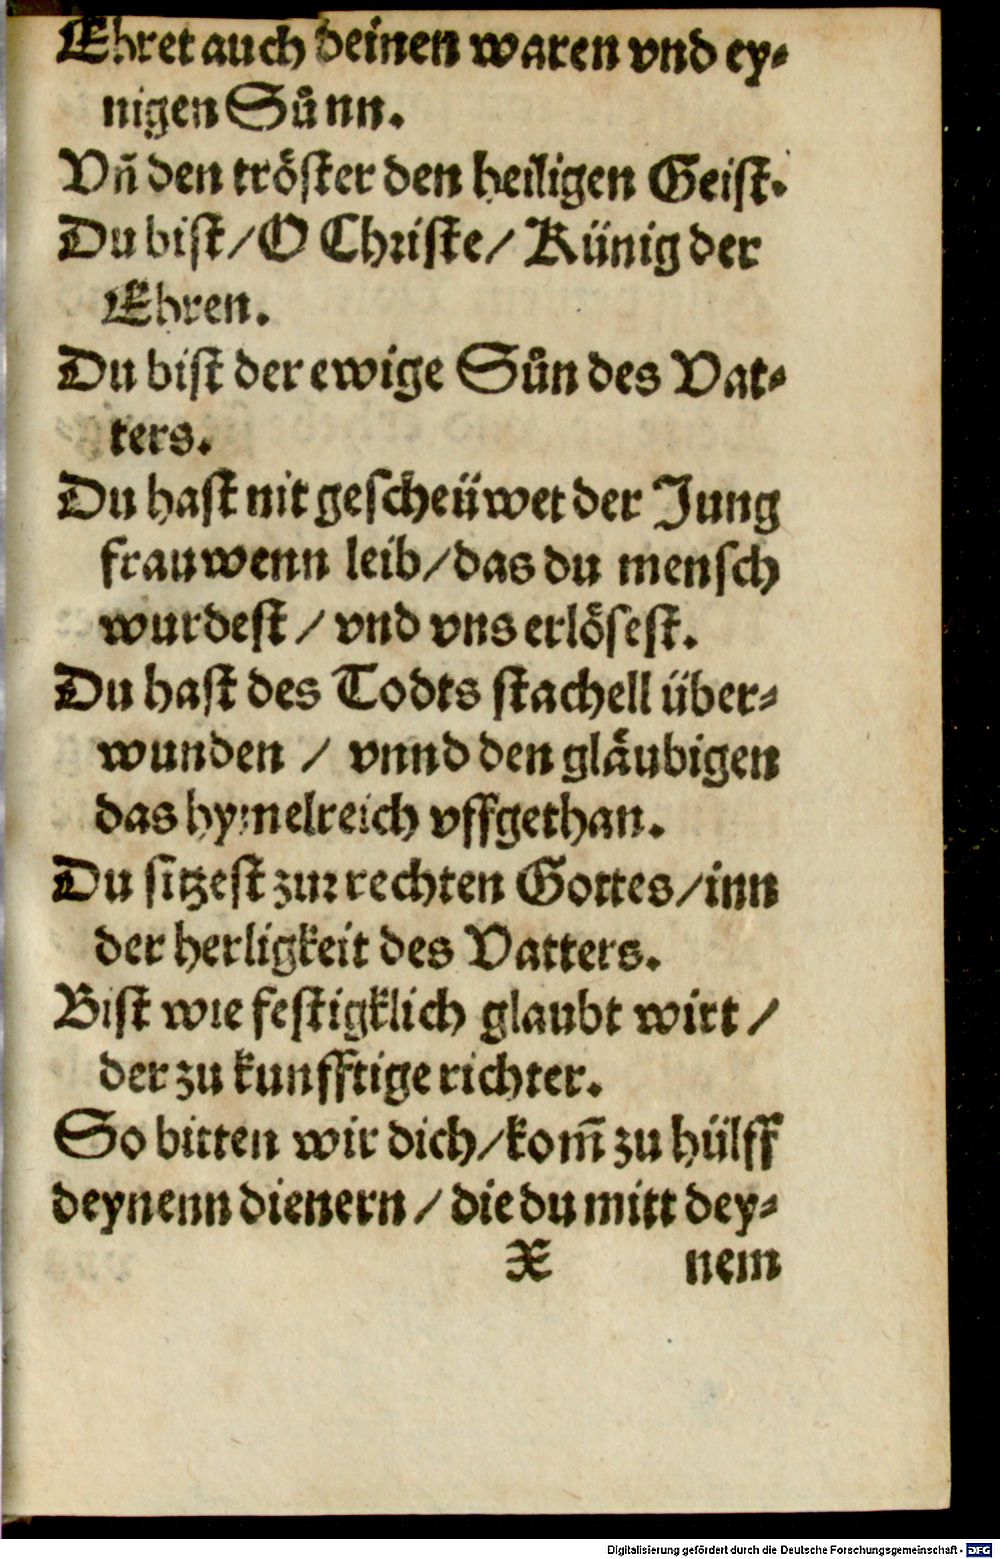 Ehret auch deinen waren vnd ey⸗
nigen Sůnn.
Vñ den tröster den heiligen Geist.
Du bist/O Christe/ Künig der
Ehren.
Du bist der ewige Sůn des Vat⸗
ters.
Du hast nit gescheüwet der Jung
frauwenn leib/das du mensch
wurdest / vnd vns erlösest.
Du hast des Todts stachell über⸗
wunden / vnnd den glåubigen
das hymelreich vffgethan.
Du sitzest zur rechten Gottes/inn
der herligkeit des Vatters.
Bist wie festigklich glaubt wirt /
der zu kunfftige richter.
So bitten wir dich/kom̃ zu hülff
deynenn dienern / die du mitt dey⸗
X nem
Digitalisierung gefördert durch die Deutsche Forschungsgemeinschaft - DFG